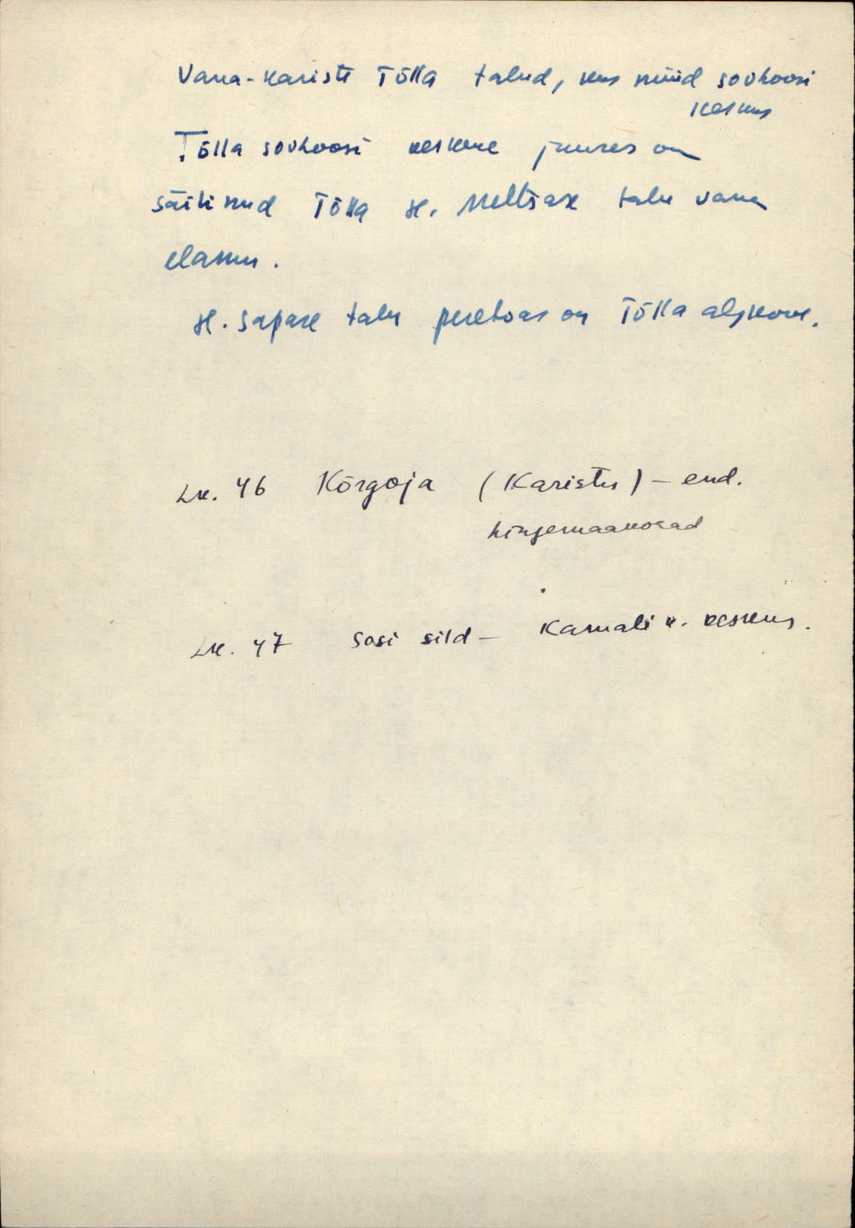 Vana-Kariste Tõlla talud, kus nüüd sovhoosi
keskus
Tõlla sovhoosi keskuse juures on
säilinud Tõlla H. Meltsase talu vana
elamu.
H. Sapase talu peretoas on Tõlla algkool.
Lk. 46 Kõrgoja (Karistu) – end.
hingemaakohad
Lk. 47 Sosi sild – Kamali k. keskus.